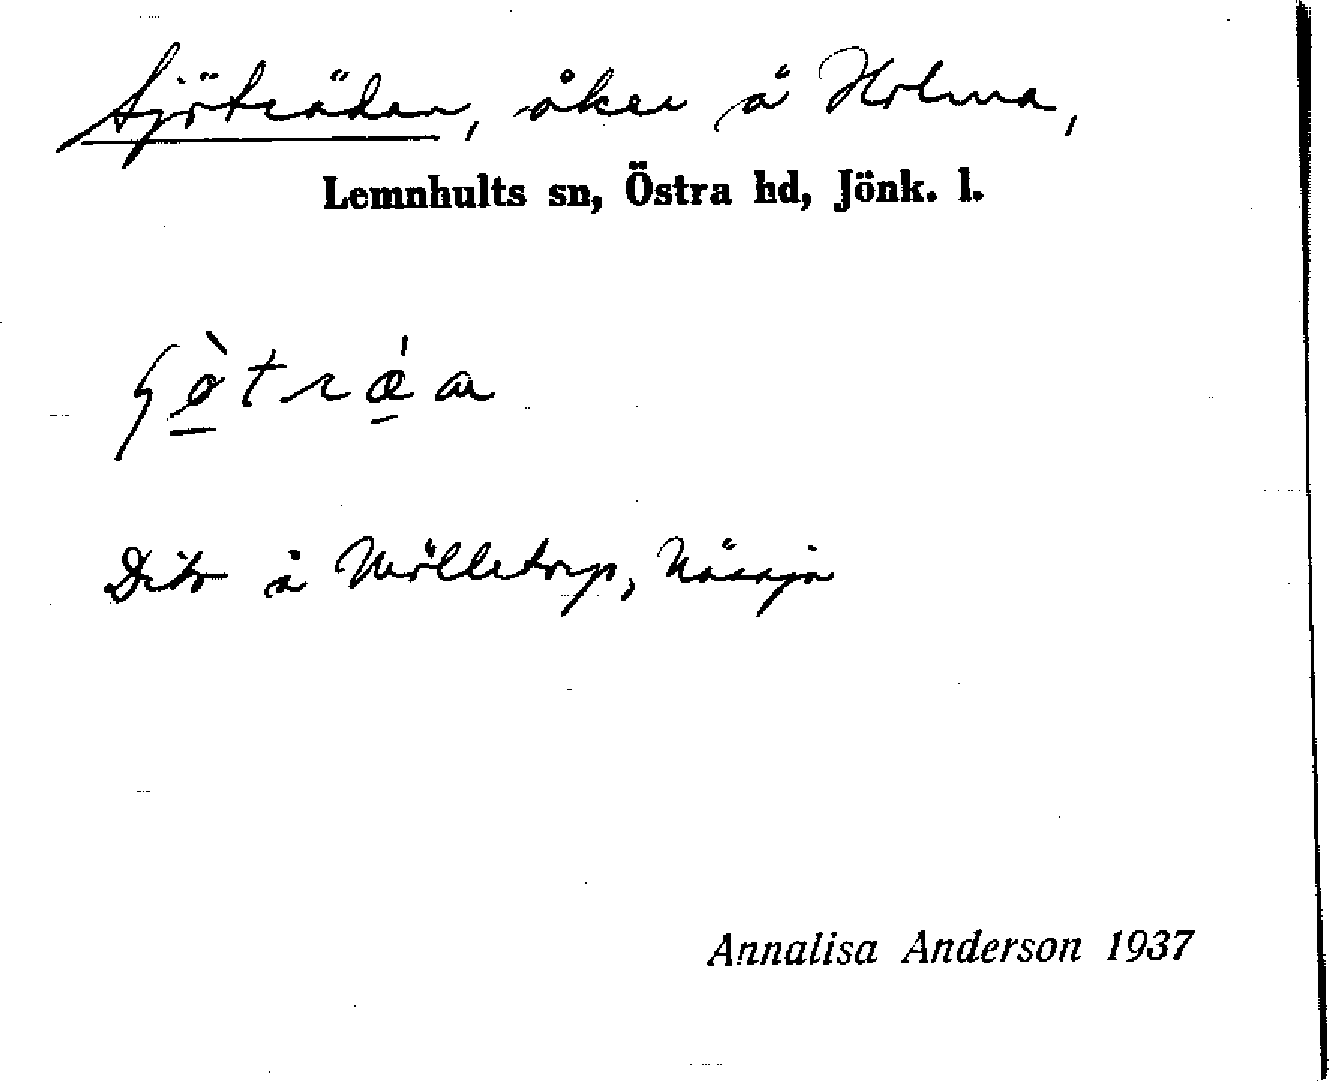 Sjöträdan, åker å Holma,
Lemnhults sn, Östra hd, Jönk. l.
Dito å Mölletorp,
Annalisa Anderson 1937